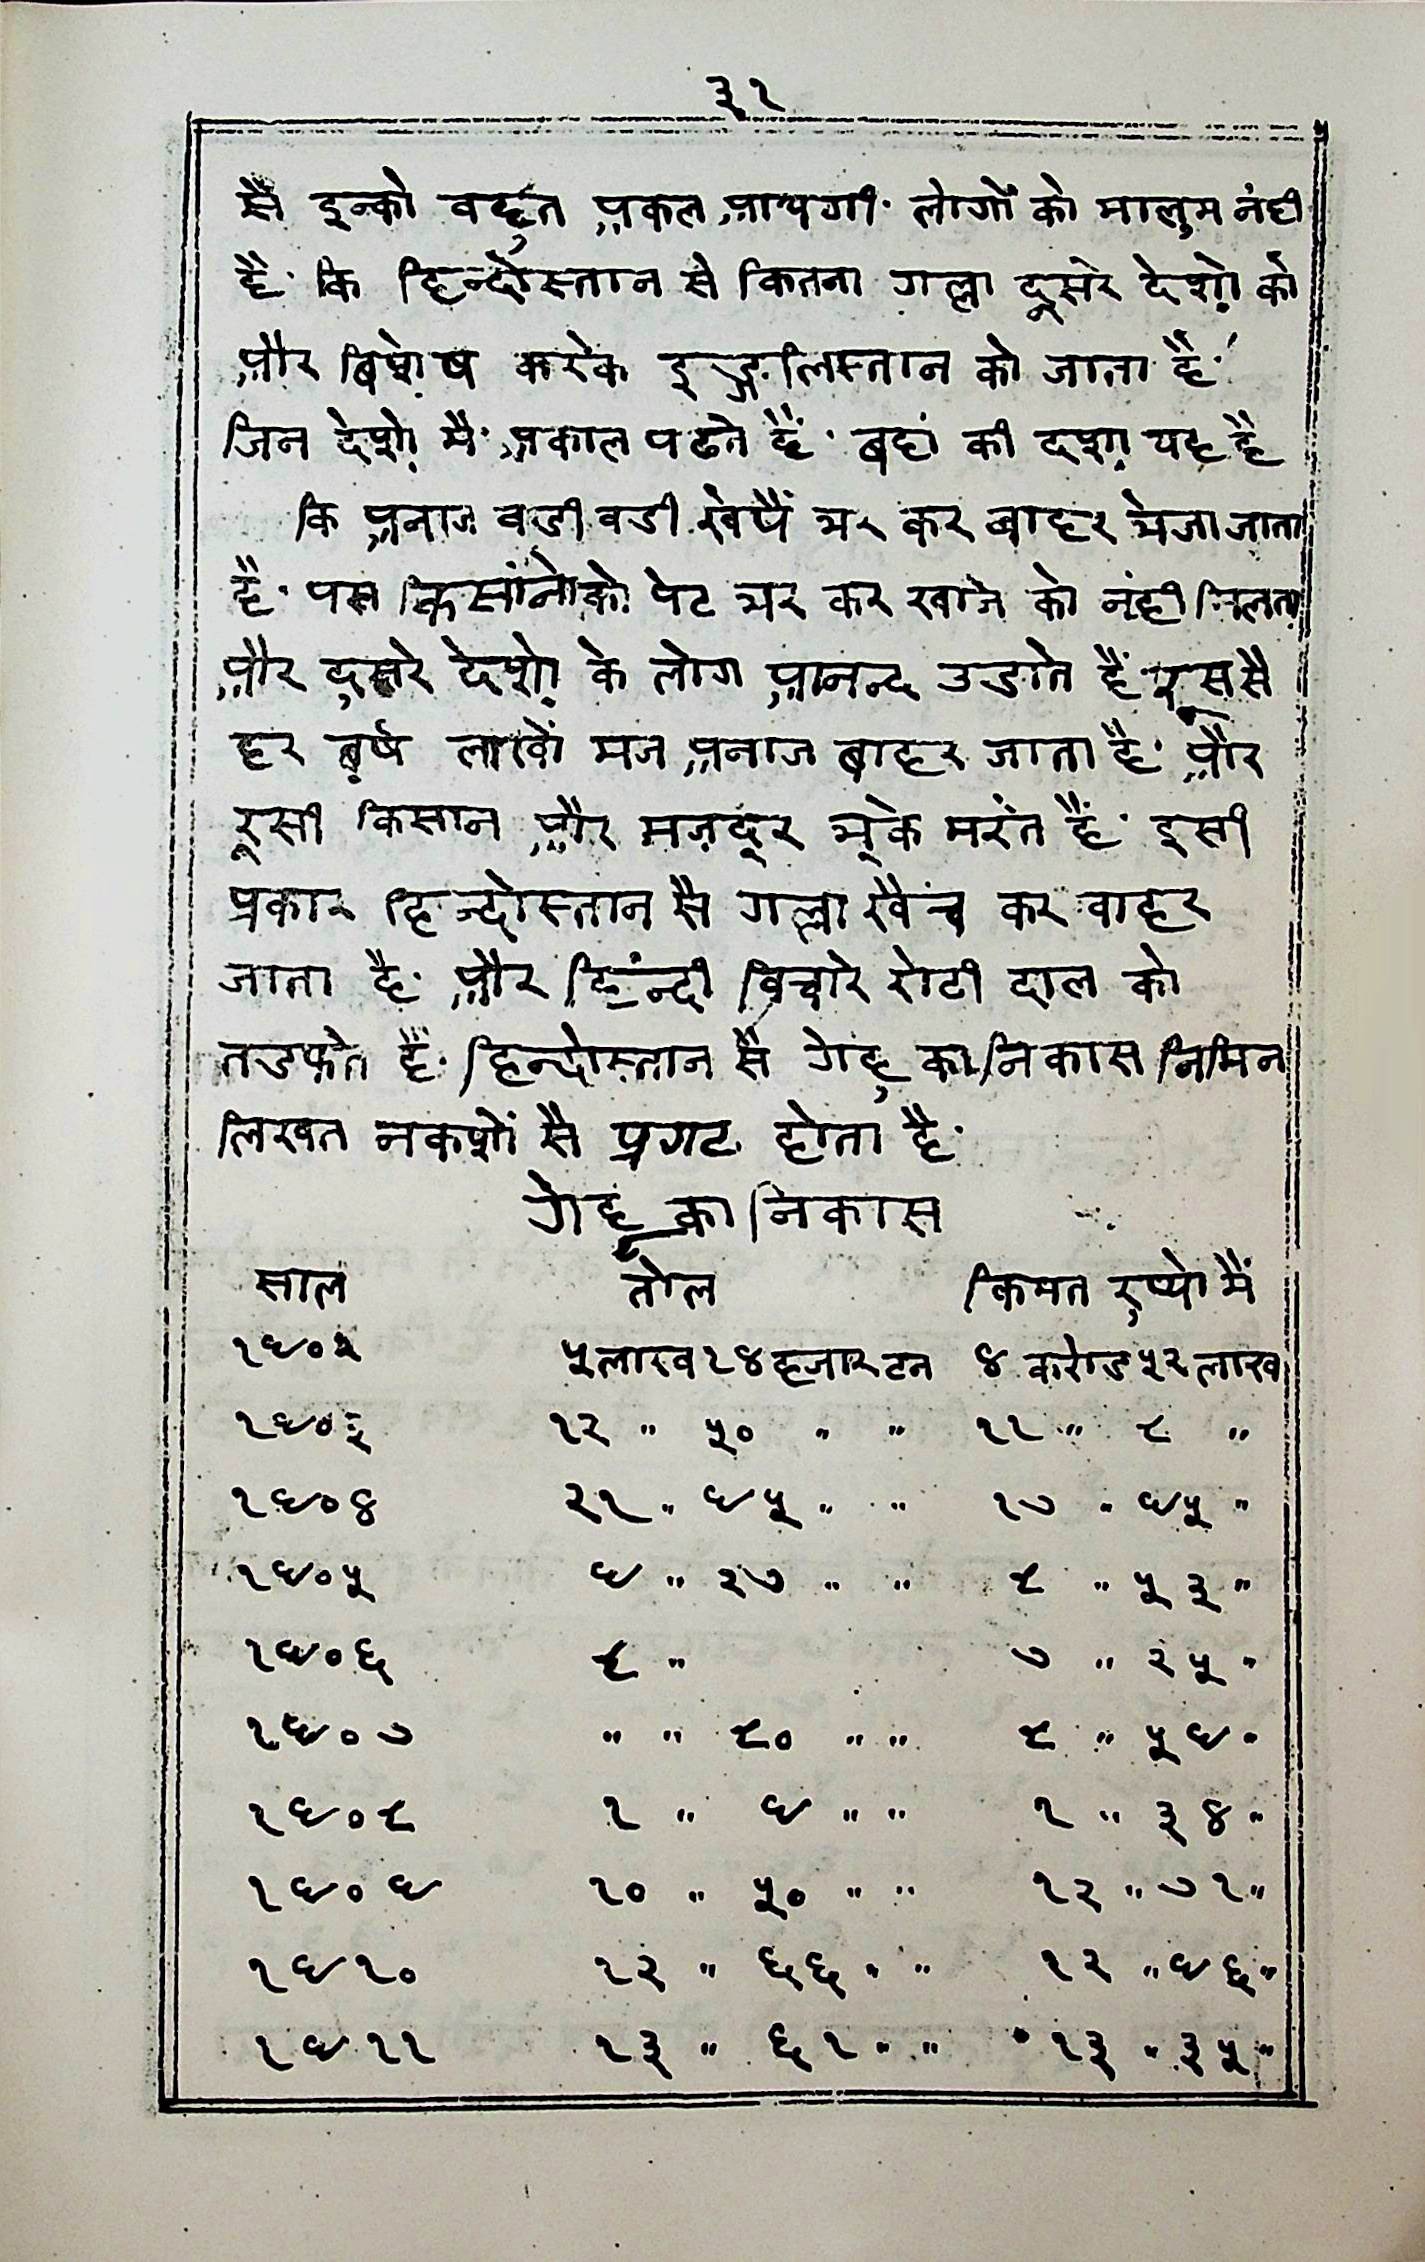 ३१
सै इन्को वहुत अकल आयगी· लोगों को मालुम नंही
है· कि हिन्दोस्तान से कितना गल्ला दूसरे देशो को
और बिशेष करके इङ्गलिस्तान को जाता है·
जिन देशो मै· अकाल पढते हैं· बहां की दशा यह है
कि अनाज वडी वडी खेपैं भर कर बाहर भेजा जाता
है· पस किसांनोको पेट भर कर खाने को नंही मिलता
और दुसरे देशो के लोग आनन्द उडाते हैं रूस सै
हर बर्ष लाखों मन अनाज बाहर जाता है· और
रूसी किसान और मज़दूर भूके मरते हैं· इसी
प्रकार हिन्दोस्तान सै गल्ला खैंच कर वाहर
जाता है· और हिंन्दी बिचारे रोटी दाल को
तडफते हैं· हिन्दोस्तान सै गेहु का निकास निमिन
लिखत नकशों सै प्रगट होता है·
गेहु का निकास
साल तोल किमत रुप्यो मैं
१९०२ ५ लाख १४ हजार टन ४ करोड ५२ लाख
१९०३ १२ " ५० " " ११ " ८ "
१९०४ २१ " ९५ " " १७ " ९५ "
१९०५ ९ " ३७ " " ८ " ५३ "
१९०६ ८ " ७ " २५ "
१९०७ " " ८० " " ८ " ५९ "
१९०८ १ " ९ " " १ " ३४ "
१९०९ १० " ५० " " १२ " ७१ "
१९१० १२ " ६६ " " १२ " ९६ "
१९११ १३ " ६१ " " १३ " ३५ "